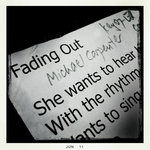 Fading Out
Michael Carpenter
She wants to hear
With the rhythm
ants to sing
JUN 11